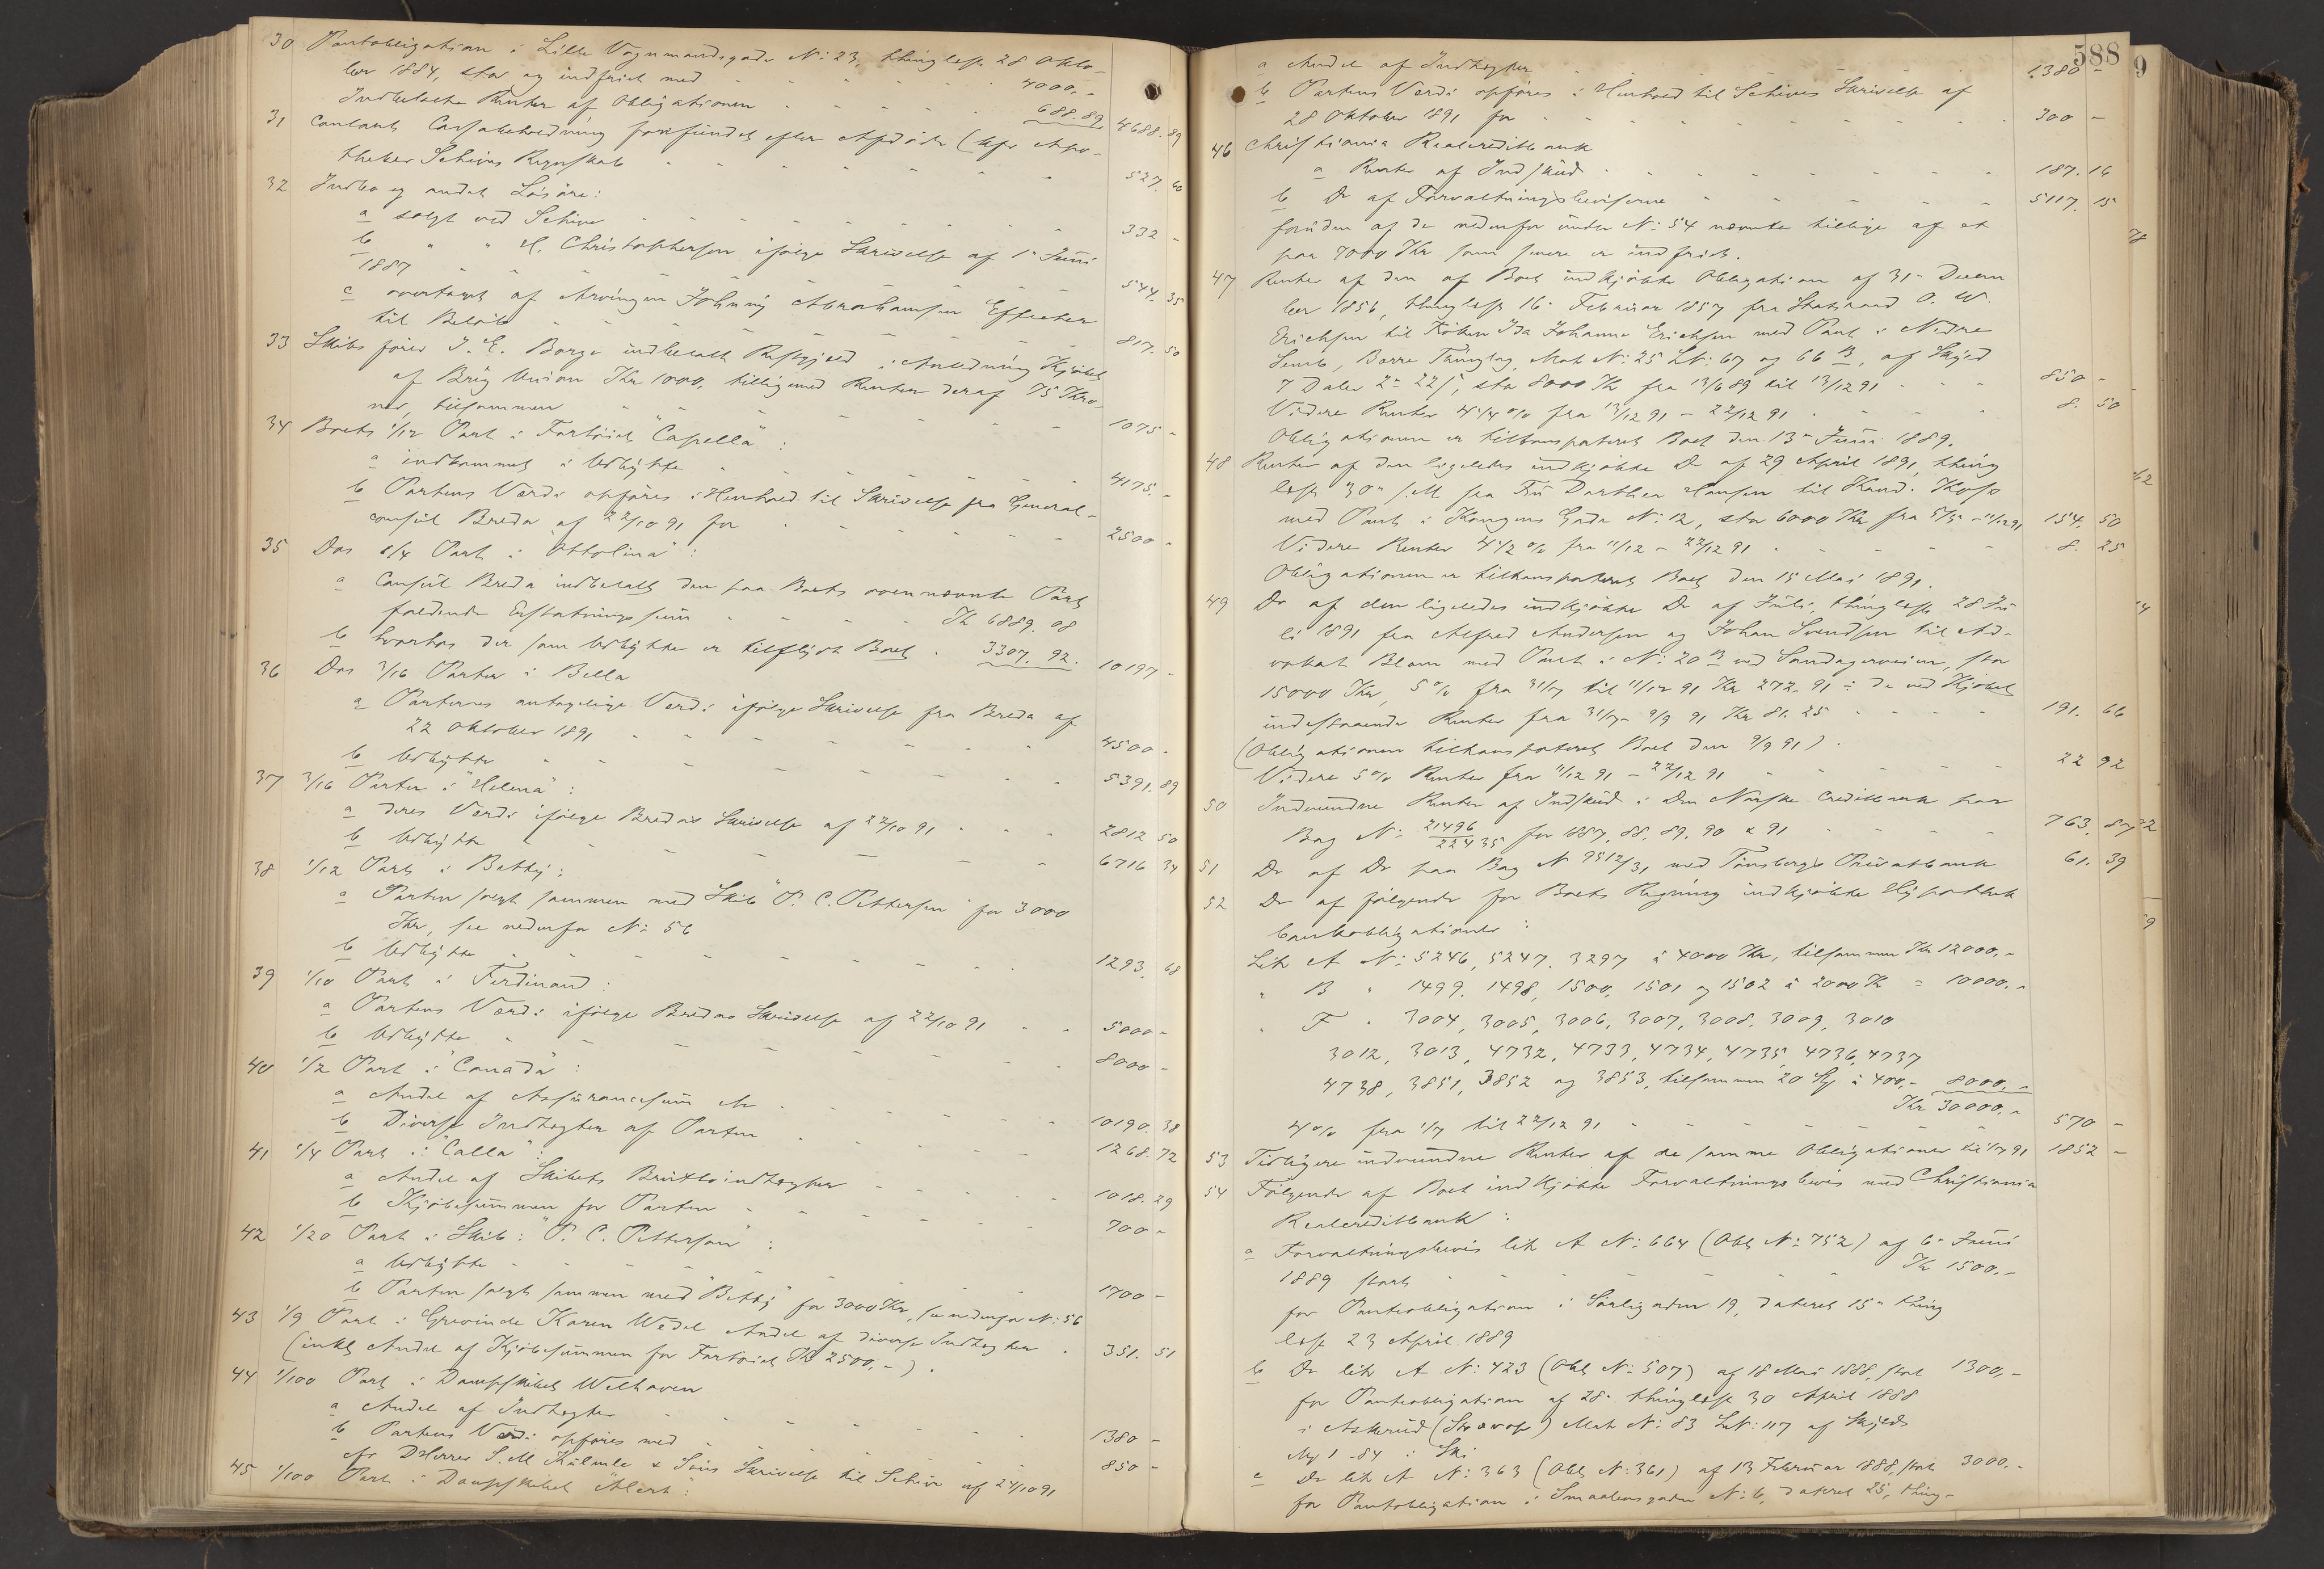 30 Pantobligation i Lille Vognmandsgade No: 23, thinglest 28 Okto-
ber 1884, stor og indfriet med - - - - 4000,-
Indbetalte Renter af Obligationen - - - - 688.89 4688.89
31 Contant Cassabeholdning forefundet efter Afdøde (kfr Apo-
theker Schives Regnskab - - - - 527.60
32 Indbo og andet Løsøre:
a solgt ved Schive - - - - 332 -
b " " H. Christophersen ifølge Skrivelse af 1ste Juni
1887 - - - - 544.35
c overtaget af Arvingen Johnny Abrahamsen Effecter
til Beløb - - - - 817.50
33 Skibsfører J. E. Borge indbetalt Restgjæld i Anledning Kjøbet
af Brig Union Kr 1000, tilligemed Renter deraf 75 Kro-
ner, tilsammen - - - - 1075 -
34 Boets 1/12 Part i Fartøiet "Capella":
a indkommet i Udbytte - - - - 4175.-
b Partens Værdi opføres i Henhold til Skrivelse fra General-
consul Breda af 22/10 91 for - - - - 2500 -
35 Dos 1/4 Part i "Ottolina":
a Consul Breda indbetalt den paa Boets ovennævnte Part
faldende Erstatningssum - - - - Kr 6889.08
b hvorhos der som Udbytte er tilflydt Boet . 3307.92. 10197 -
36 Dos 3/16 Parter i Bella
a Parternes antagelige Værdi ifølge Skrivelse fra Breda af
22 Oktober 1891 - - - - 4500 -
b Udbytte - - - - 5391.89
37 3/16 Parter i "Helena":
a deres Værdi ifølge Bredas Skrivelse af 22/10 91 - - - 2812 50
b Udbytte - - - - 6716 34
38 1/12 Part i Betty:
a Parten solgt sammen med Skib "P. C. Petterson" for 3000
Kr, se nedenfor No: 56
b Udbytte - - - - 1293.68
39 1/10 Part i Ferdinand:
a Partens Værdi ifølge Bredas Skrivelse af 22/10 91 - - 5000 -
b Udbytte - - - - 8000 -
40 1/2 Part i "Canada":
a Andel af Assurancesum - - - - 10190.38
b Diverse Indtægter af Parten - - - - 1268.72
41 1/4 Part i "Calla":
a Andel af Skibets Bruttoindtægter - - - - 1018.29
b Kjøbesummen for Parten - - - - 700 -
42 1/20 Part i Skib: "P. C. Petterson":
a Udbytte - - - - 1700 -
b Parten solgt sammen med "Betty" for 3000 Kr, se nedenfor No: 56
43 1/9 Part i Grevinde Karen Wedel Andel af diverse Indtægter . 351.51
(inkl Andel af Kjøbesummen for Fartøiet Kr 2500,-).
44 1/100 Part i Dampskibet Welhaven
a Andel af Indtægter - - - - 1380 -
b Partens Værdi opføres med - - - - 850 -
cfr DHerrer S. M. Kulmle & Søns Skrivelse til Schive af 24/10 91
45 1/100 Part i Dampskibet "Alert":
588
a Andel af Indtægter - - - - 1380 -
b Partens Værdi opføres i Henhold til Schives Skrivelse af
28 Oktober 1891 for - - - - 300 -
46 Christiania Realcreditbank
a Renter af Indskud - - - - 187.16
b Do af Forvaltningsbeviserne - - - - 5117.15
foruden af de nedenfor under No: 54 nævnte tillige af et
paa 7000 Kr som senere er indfriet.
47 Renter af den af Boet indkjøbte Obligation af 31te Decem
ber 1856, thinglest 16de Februar 1857 fra Statsraad O. W.
Erichsen til Frøken Ida Johanne Erichsen med Pant i Nedre
Semb, Borre Thinglag, Mat No: 25 LNo: 67 og 66 B, af Skyld
7 Daler 2 - 22 s, stor 8000 Kr fra 13/6 89 til 13/12 91 - - - 850 -
Videre Renter 4 1/4 % fra 13/12 91 - 22/12 91 - - - 8.50
Obligationen er tiltransporteret Boet den 13de Juni 1889.
48 Renter af den ligeledes indkjøbte Do af 29 April 1891, thing
lest 30te s. M fra Fru Dorthea Hansen til Kand.
med Pant i Kongens Gade No: 12, stor 6000 Kr fra 5/5 - 11/12 91 154.50
Videre Renter 4 1/2 % fra 11/12 - 22/12 91 - - - 8.25
Obligationen er tiltransporteret Boet den 15 Mai 1891.
49 Do af den ligeledes indkjøbte Do af Juli, thinglest 28 Ju
li 1891 fra Alfred Andersen og Johan Svendsen til Ad-
vokat Blom med Pant i No: 20 B ved Sandagerveien, stor
15000 Kr, 5% fra 31/7 til 11/12 91 Kr 272.91 ÷ de ved Kjøbet
indestaaende Renter fra 31/7 - 9/9 91 Kr 81.25 - - - 191.66
(Obligationen tiltransporteret Boet den 9/9 91).
Videre 5% Renter fra 11/12 91 - 22/12 91 - - - 22 92
50 Indvundne Renter af Indskud i Den Norske Creditbank paa
Bog No: 21496/22435 for 1887, 88, 89, 90 & 91 - - - 763.87
51 Do af Do paa Bog No 9512/31 med Tønsbergs Privatbank 61.39
52 Do af følgende for Boets Regning indkjøbte Hypothek
bankobligationer:
Litr A No: 5246, 5247, 3297 à 4000 Kr, tilsammen Kr 12000,-
" B " 1499, 1498, 1500, 1501 og 1502 à 2000 Kr = 10000,-
" F " 3004, 3005, 3006, 3007, 3008, 3009, 3010
3012, 3013, 4732, 4733, 4734, 4735, 4736, 4737
4738, 3851, 3852 og 3853, tilsammen 20 St à 400,- 8000,-
Kr 30000,-
4% fra 1/7 til 22/12 91 - - - - 570 -
53 Tidligere indvundne Renter af de samme Obligationer til 1/7 91 1852 -
54 Følgende af Boet indkjøbte Forvaltningsbevis med Christiania
Realcreditbank:
a Forvaltningsbevis litr A No: 664 (Obl No: 752) af 6te Juni
1889 stort - - - - Kr 1500,-
for Pantobligation i Sørligaden 19, dateret 15de thing
lest 23 April 1889
b Do litr A No: 423 (Obl No: 507) af 18 Mai 1888, stort 1300,-
for Pantobligation af 28de thinglest 30 April 1888
i Askerud Mat No: 83 LNo: 117 af Skyld
1 - 84 i Ski
c Do litr A No: 363 (Obl No: 361) af 13 Februar 1888, stort 3000,-
for Pantobligation i Smaalensgaden No: 6, dateret 25, thing-